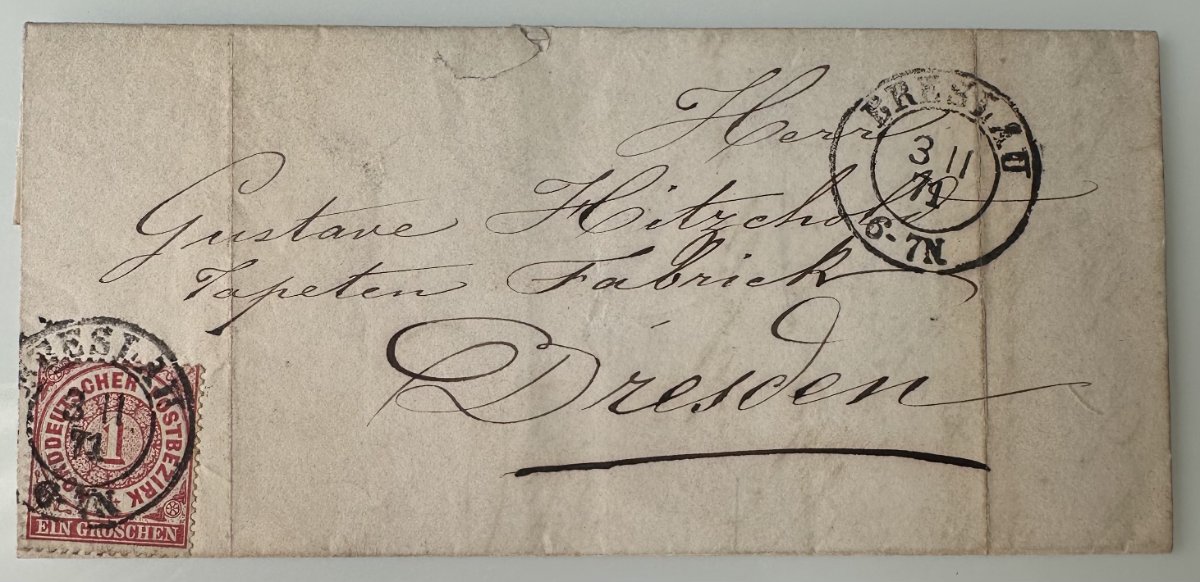 Herrn
Gustave Hitzchold
Tapeten Fabrick
Dresden
BRESLAU
3 11
71
6-7N
BRESLAU
3 11
71
6-7N
NORDDEUTSCHER POSTBEZIRK
1
EIN GROSCHEN